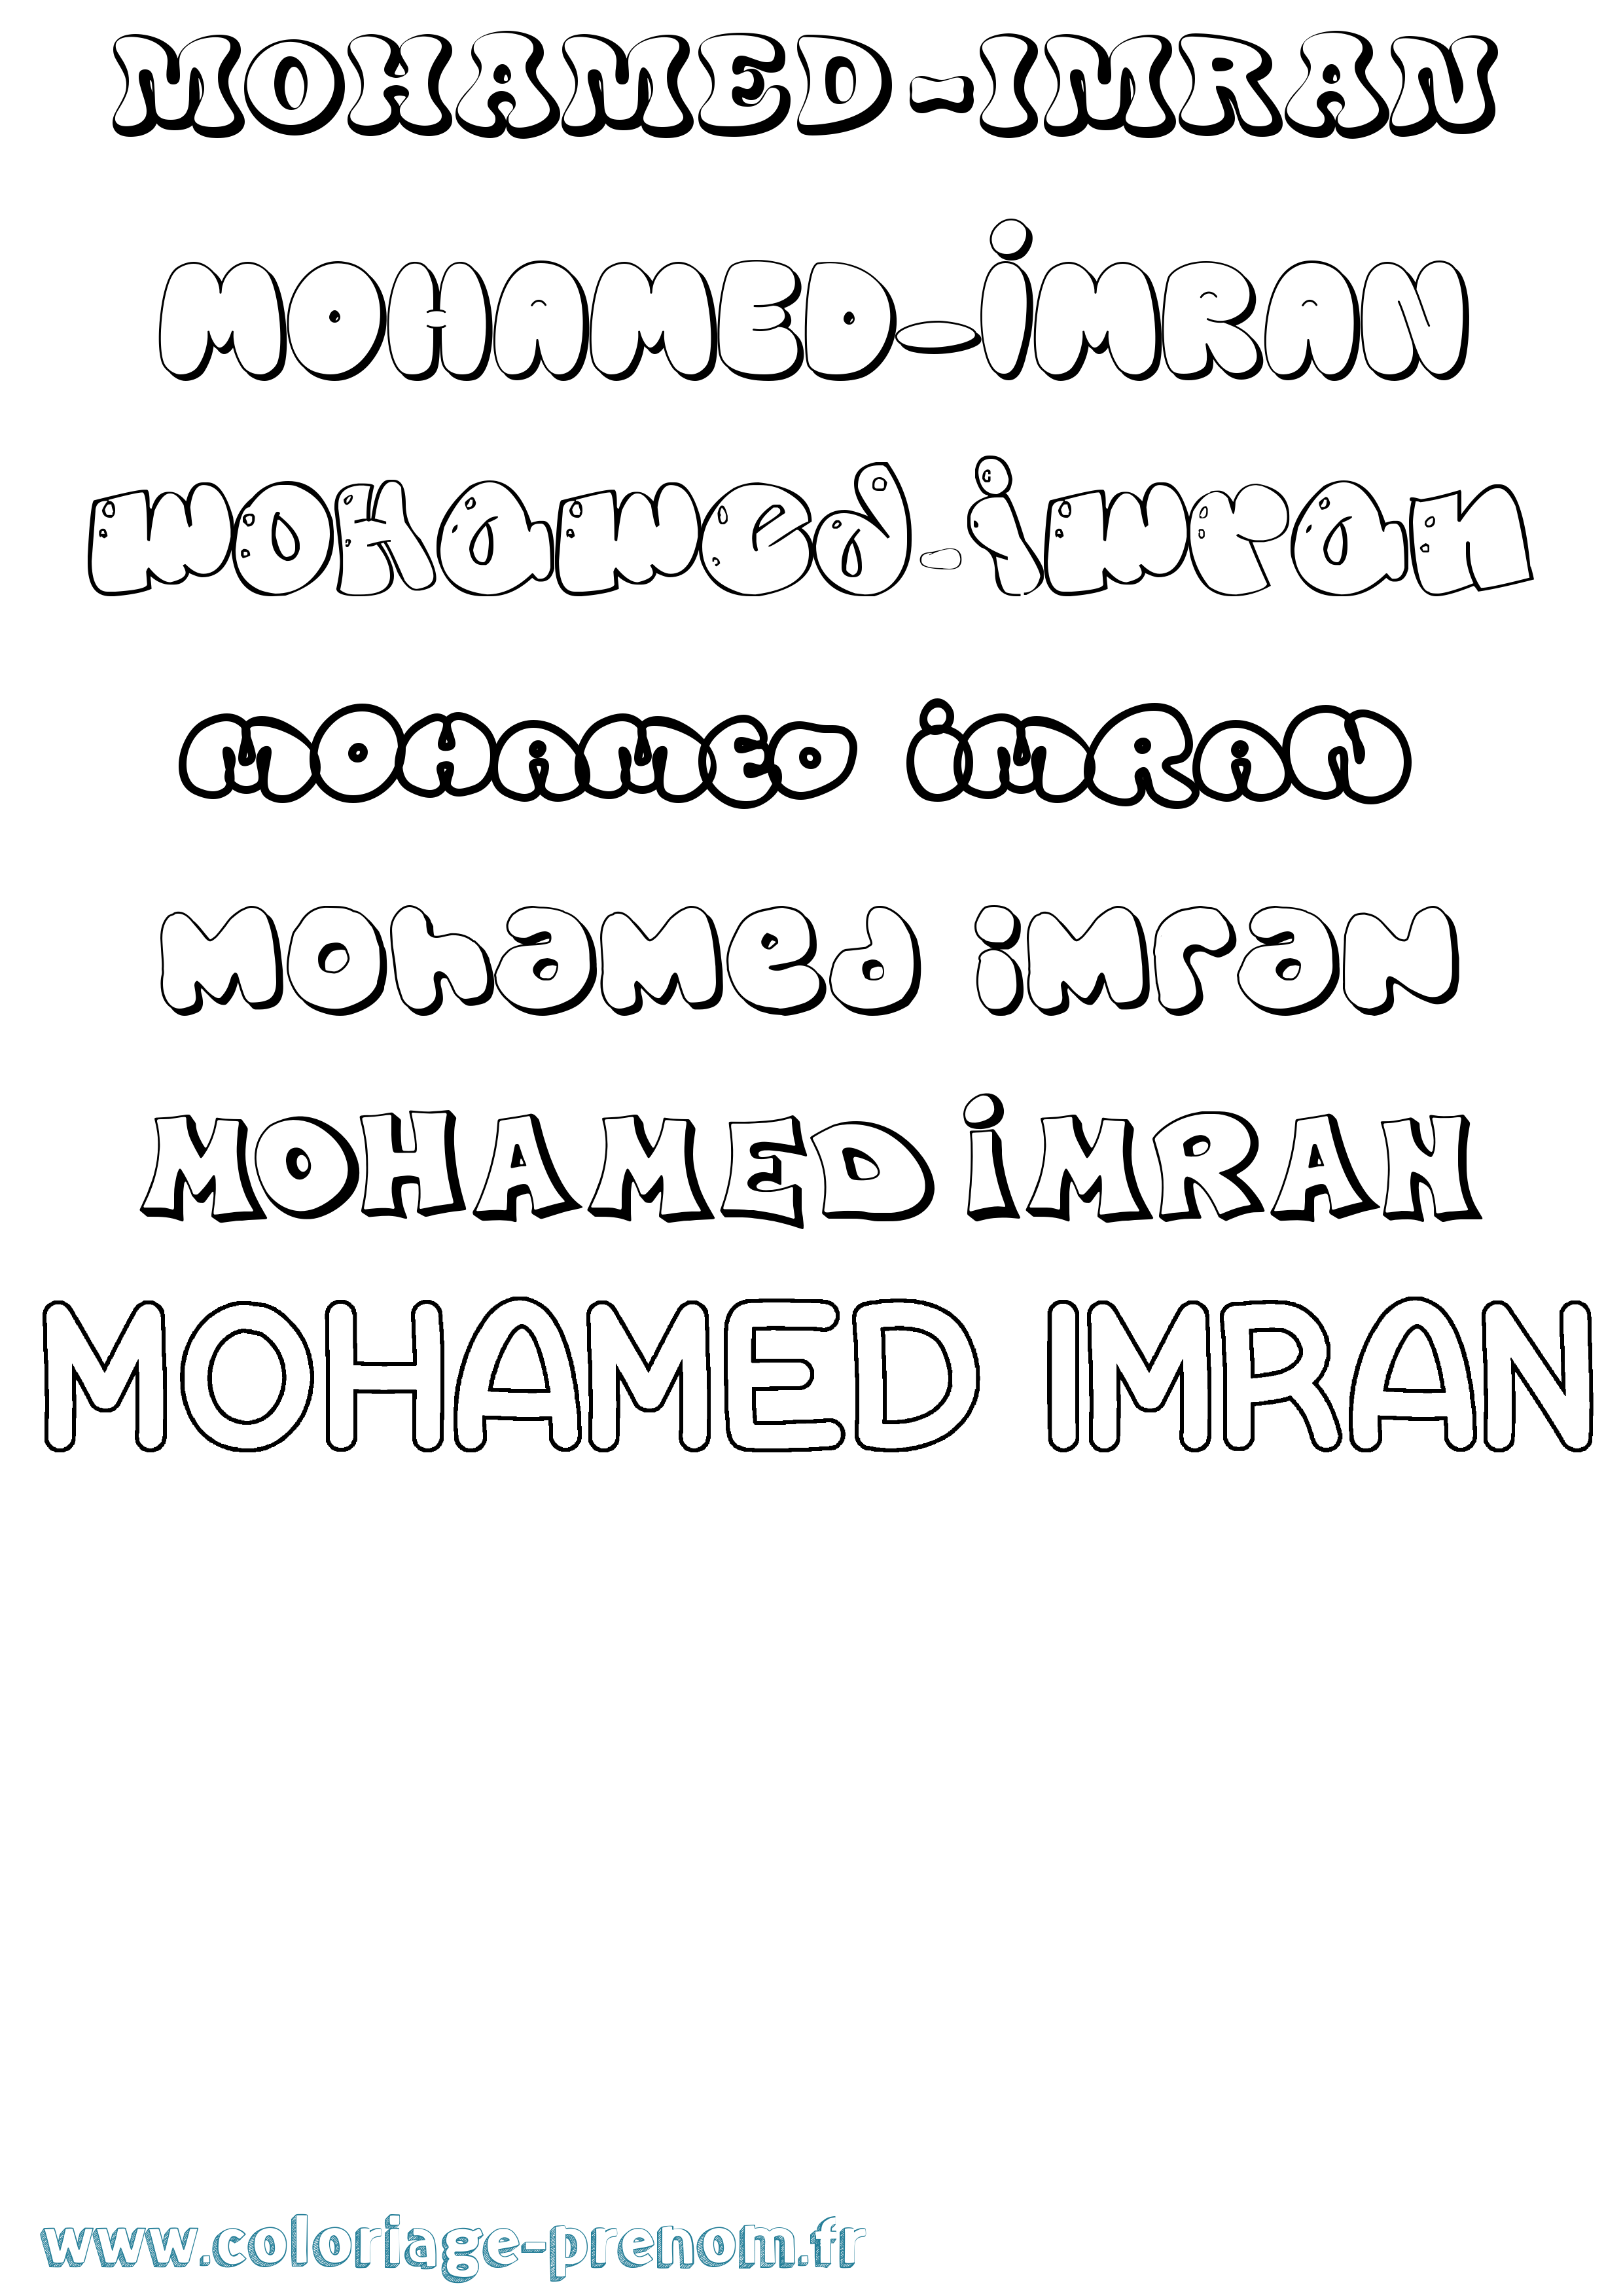 MOHAMED-IMRAN
MOHAMED-iMRAN
mohamed-imran
MOHAMED iMRAN
mohamed imran
MOHAMED iMRAN
MOHAMED IMRAN
www.coloriage-prenom.fr